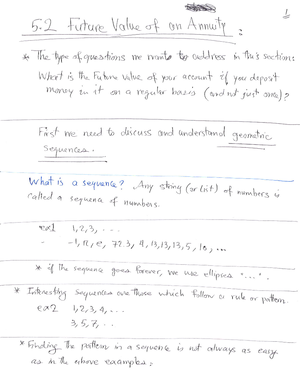 1
5.2 Future Value of an Annuity :
* The type of questions we want to address in this section:
What is the Future value of your account if you deposit
money in it on a regular basis (and not just once)?
First we need to discuss and understand geometric
sequences.
What is a sequence? Any string (or list) of numbers is
called a sequence of numbers.
ex1 1, 2, 3, . . .
-1, π, e, 72.3, 4, 13, 13, 13, 5, 10, ...
* if the sequence goes forever, we use ellipses "...".
* Interesting sequences are those which follow a rule or pattern.
ex2 1, 2, 3, 4, . . .
3, 5, 7, . .
* Finding the pattern in a sequence is not always as easy
as in the above examples.